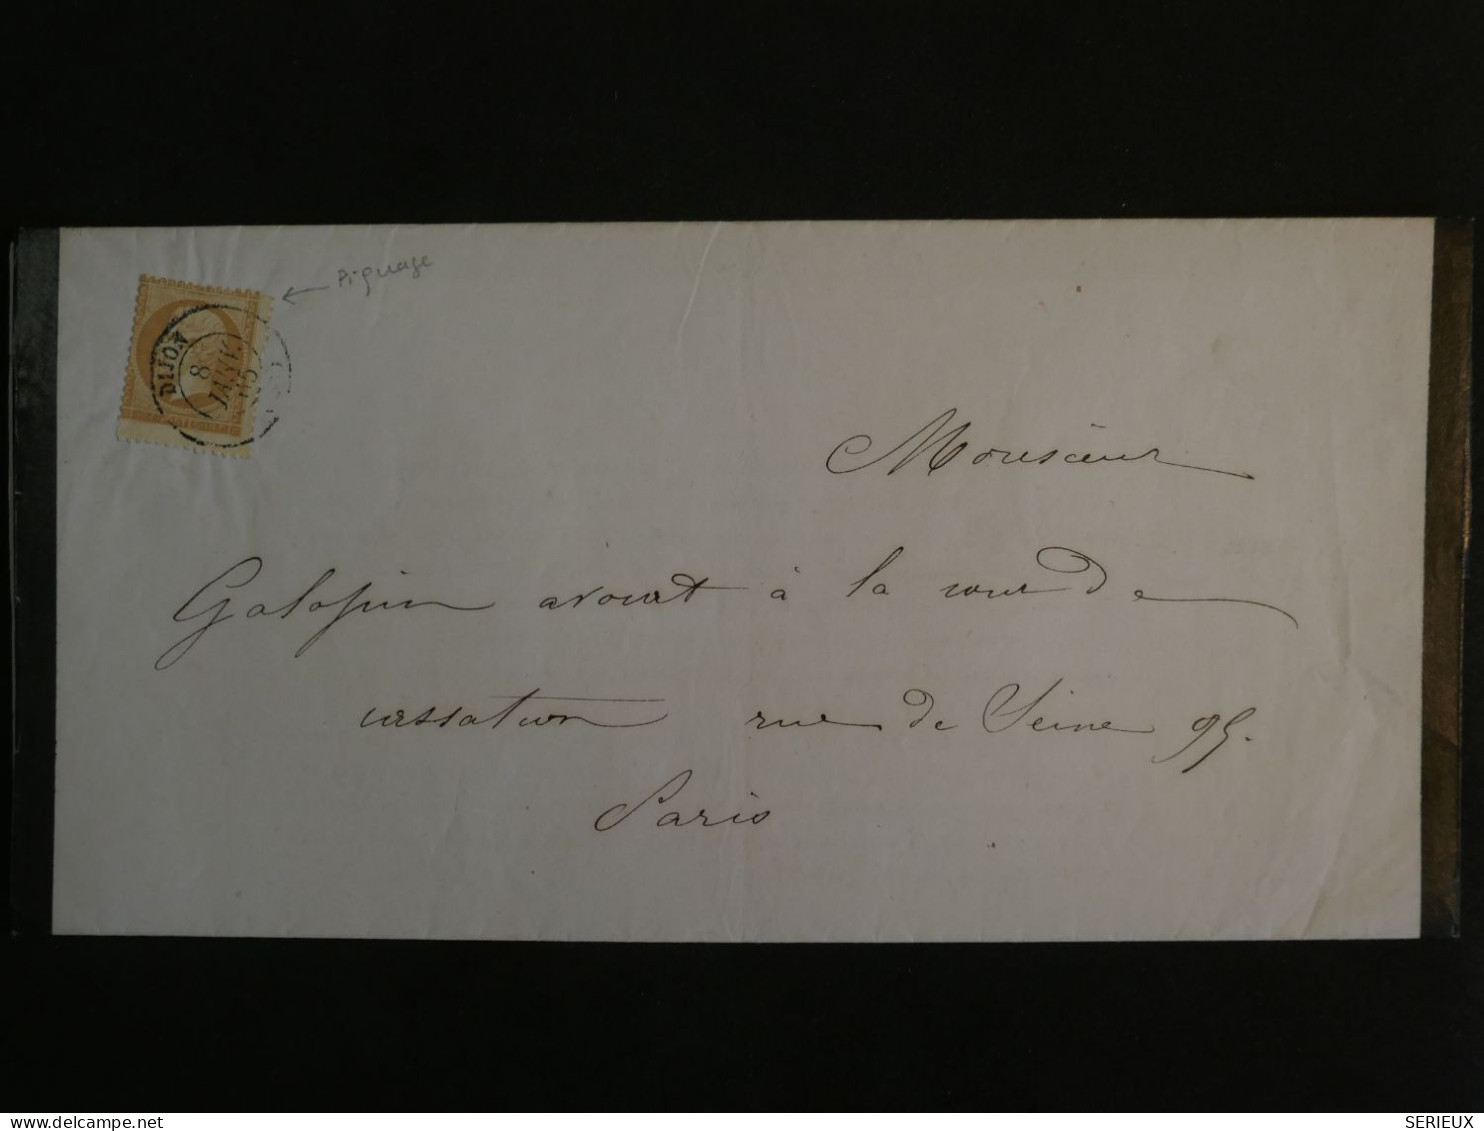 Piquage
DIJON
8
JANV.
65
Monsieur
Galopin avocat à la cour de
cassation rue de Seine 95.
Paris
delcampe.net
SERIEUX